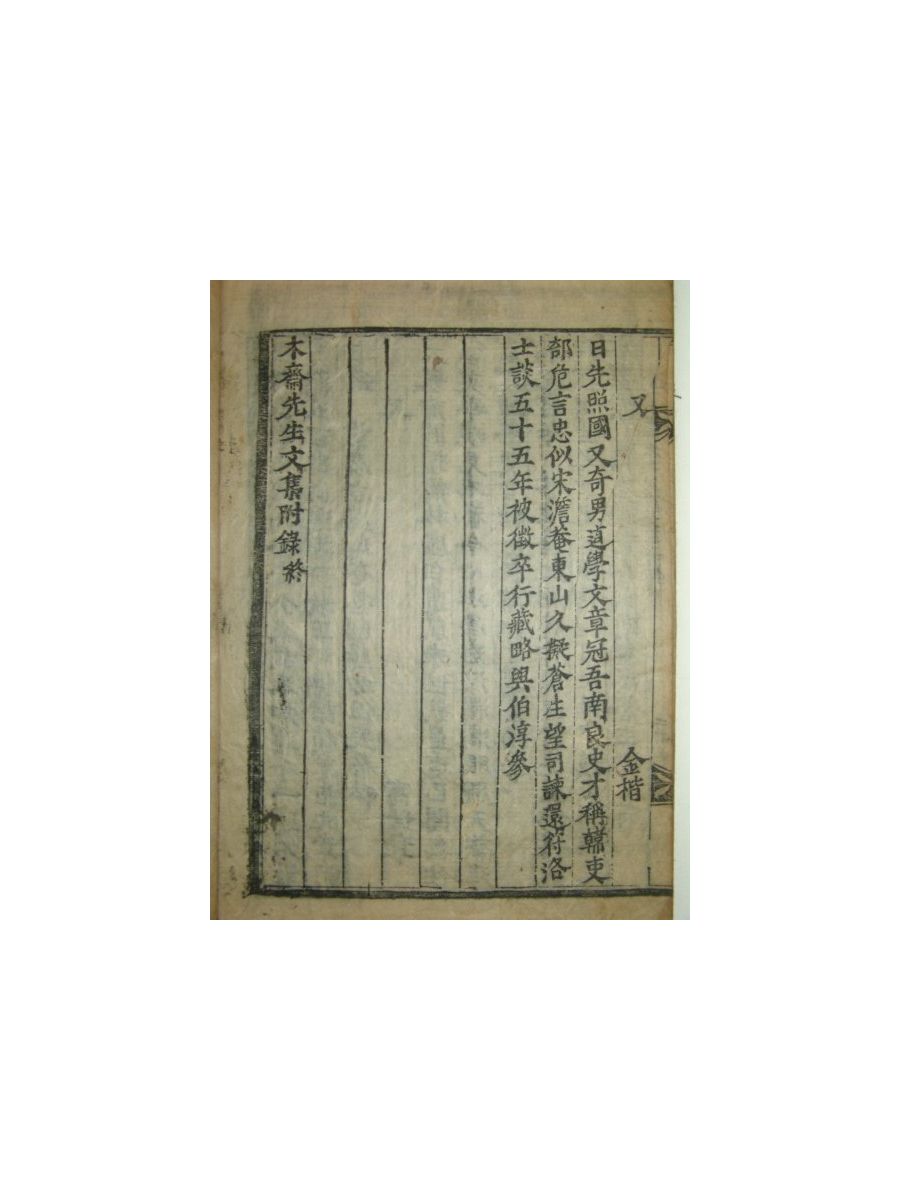 又 金楷
日先照國又奇男道學文章冠吾南良史才稱韓吏
部危言忠似宋澹菴東山久擬蒼生望司諫還符洛
士談五十五年被徵卒行藏略與伯淳參
木齋先生文集附錄終